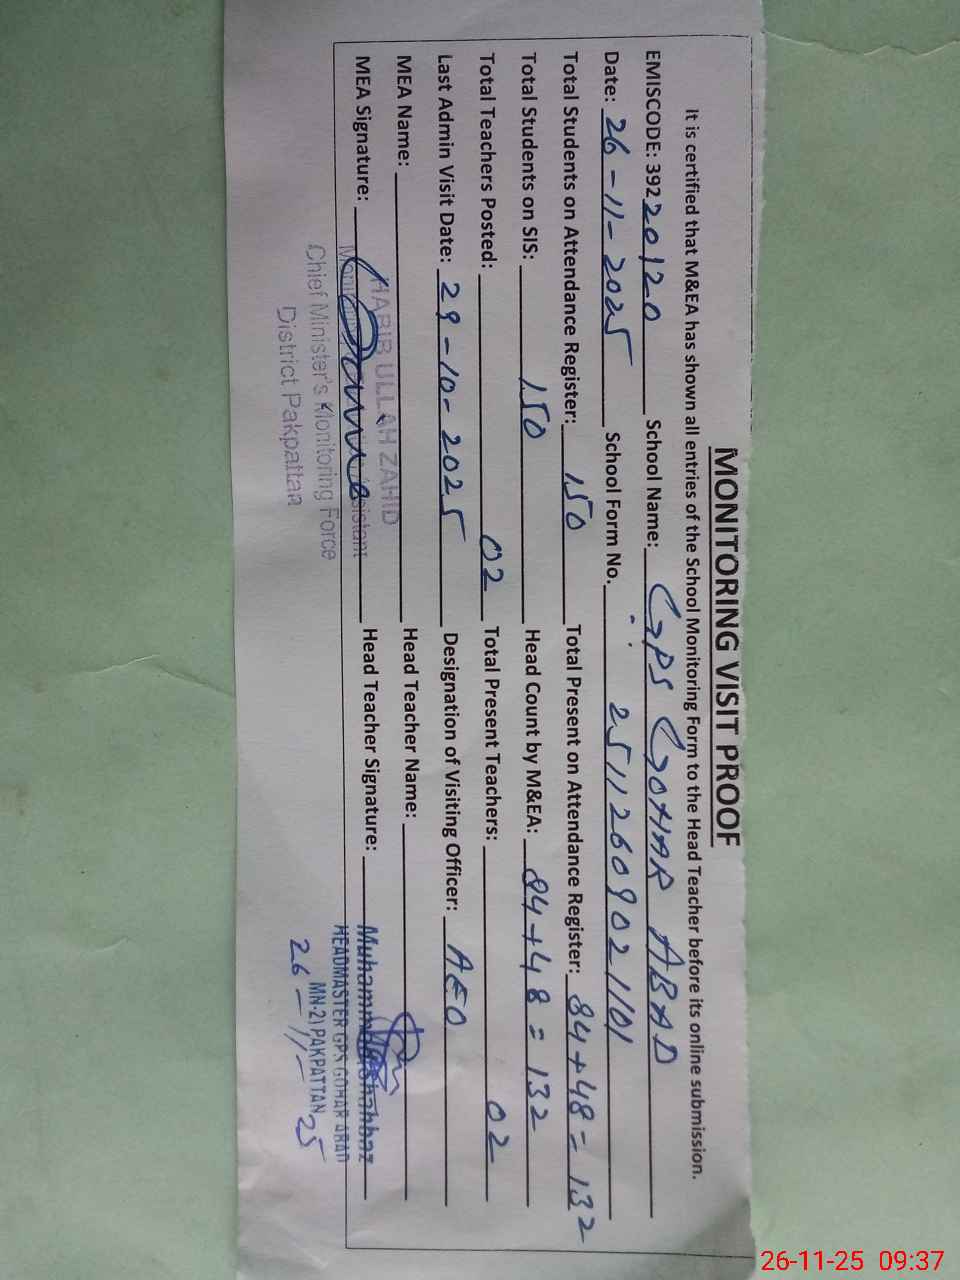 MONITORING VISIT PROOF
It is certified that M&EA has shown all entries of the School Monitoring Form to the Head Teacher before its online submission.
EMISCODE: 39220120 School Name: GPS GOHAR ABAD
Date: 26-11-2025 School Form No. 25112609021101
Total Students on Attendance Register: 150 Total Present on Attendance Register: 84+48=132
Total Students on SIS: 150 Head Count by M&EA: 84+48=132
Total Teachers Posted: 02 Total Present Teachers: 02
Last Admin Visit Date: 29-10-2025 Designation of Visiting Officer: AEO
MEA Name: HABIB ULLAH ZAHID Head Teacher Name:
MEA Signature: Head Teacher Signature: Muhammad Shahbaz
Monitoring Assistant HEADMASTER GPS GOHAR ABAD
Chief Minister's Monitoring Force MN-2) PAKPATTAN
District Pakpattan 26-11-25
26-11-25 09:37